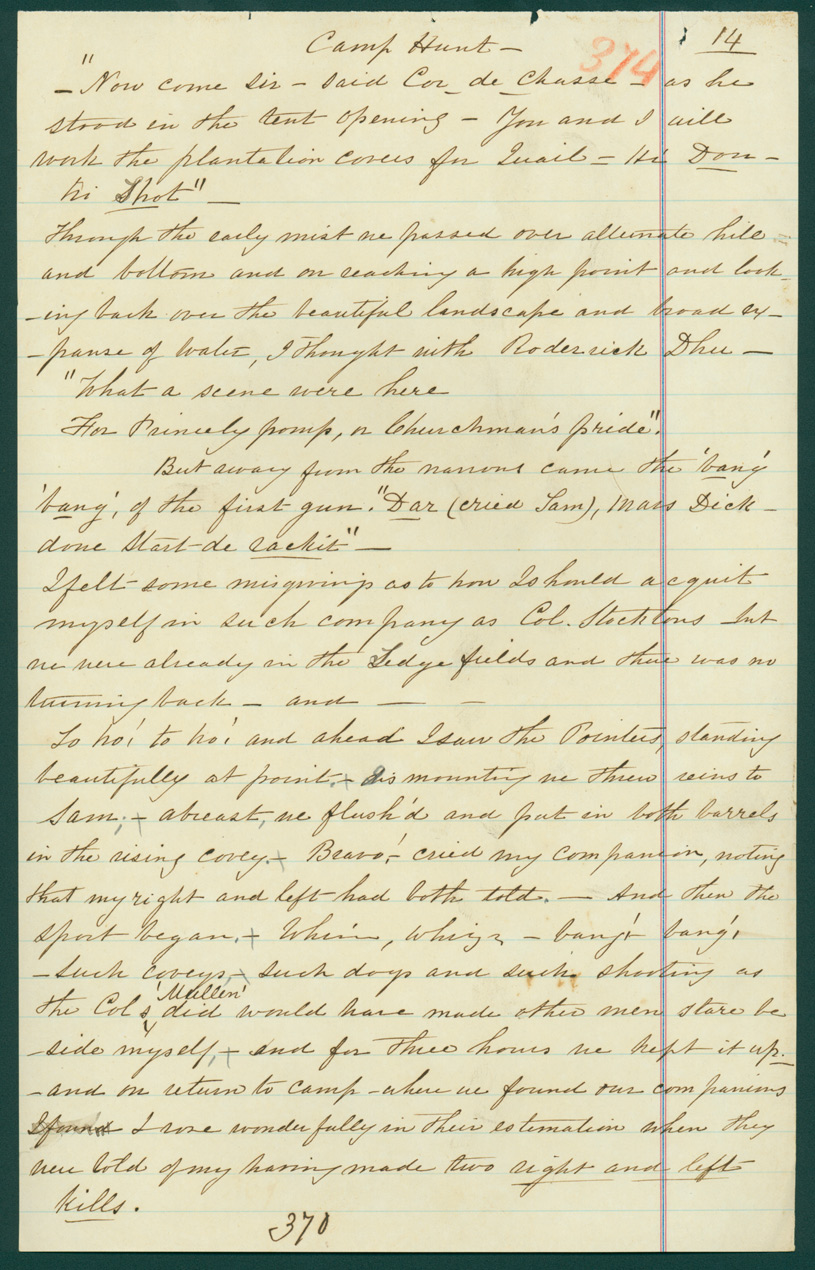 Camp Hunt —
374
14
"
— Now come sir — said Cor de Chasse — as he
stood in the tent opening — You and I will
work the plantation covers for Quail — Hi Don —
ki Shot" —
Through the early mist we passed over alternate hill
and bottom and on reaching a high point and look-
-ing back over the beautiful landscape and broad ex-
-panse of water, I thought with Roderrick Dhu —
"What a scene were here
For Princely pomp, or Churchman's pride".
But away from the narrows came the 'bang'
'bang', of the first gun. "Dar (cried Sam), Mars Dick —
done start de rackit" —
I felt some misgivings as to how I should acquit
myself in such company as Col. Stocktons but
we were already in the Sedge fields and there was no
turning back — and — —
To ho! to ho! and ahead I saw the Pointers, standing
beautifully at point. — dismounting we threw reins to
Sam; — abreast, we flush'd and put in both barrels
in the rising covey. — Bravo! — cried my companion, noting
that my right and left had both told. — And then the
sport began. — Whirr, whizz — bang! bang!
— such coveys, — such dogs and such shooting as
'Mullen'
the Col's did would have made other men stare be
-side myself, — and for three hours we kept it up. —
- and on return to camp - where we found our companions
I found I rose wonderfully in their estimation when they
were told of my having made two right and left
kills.
370